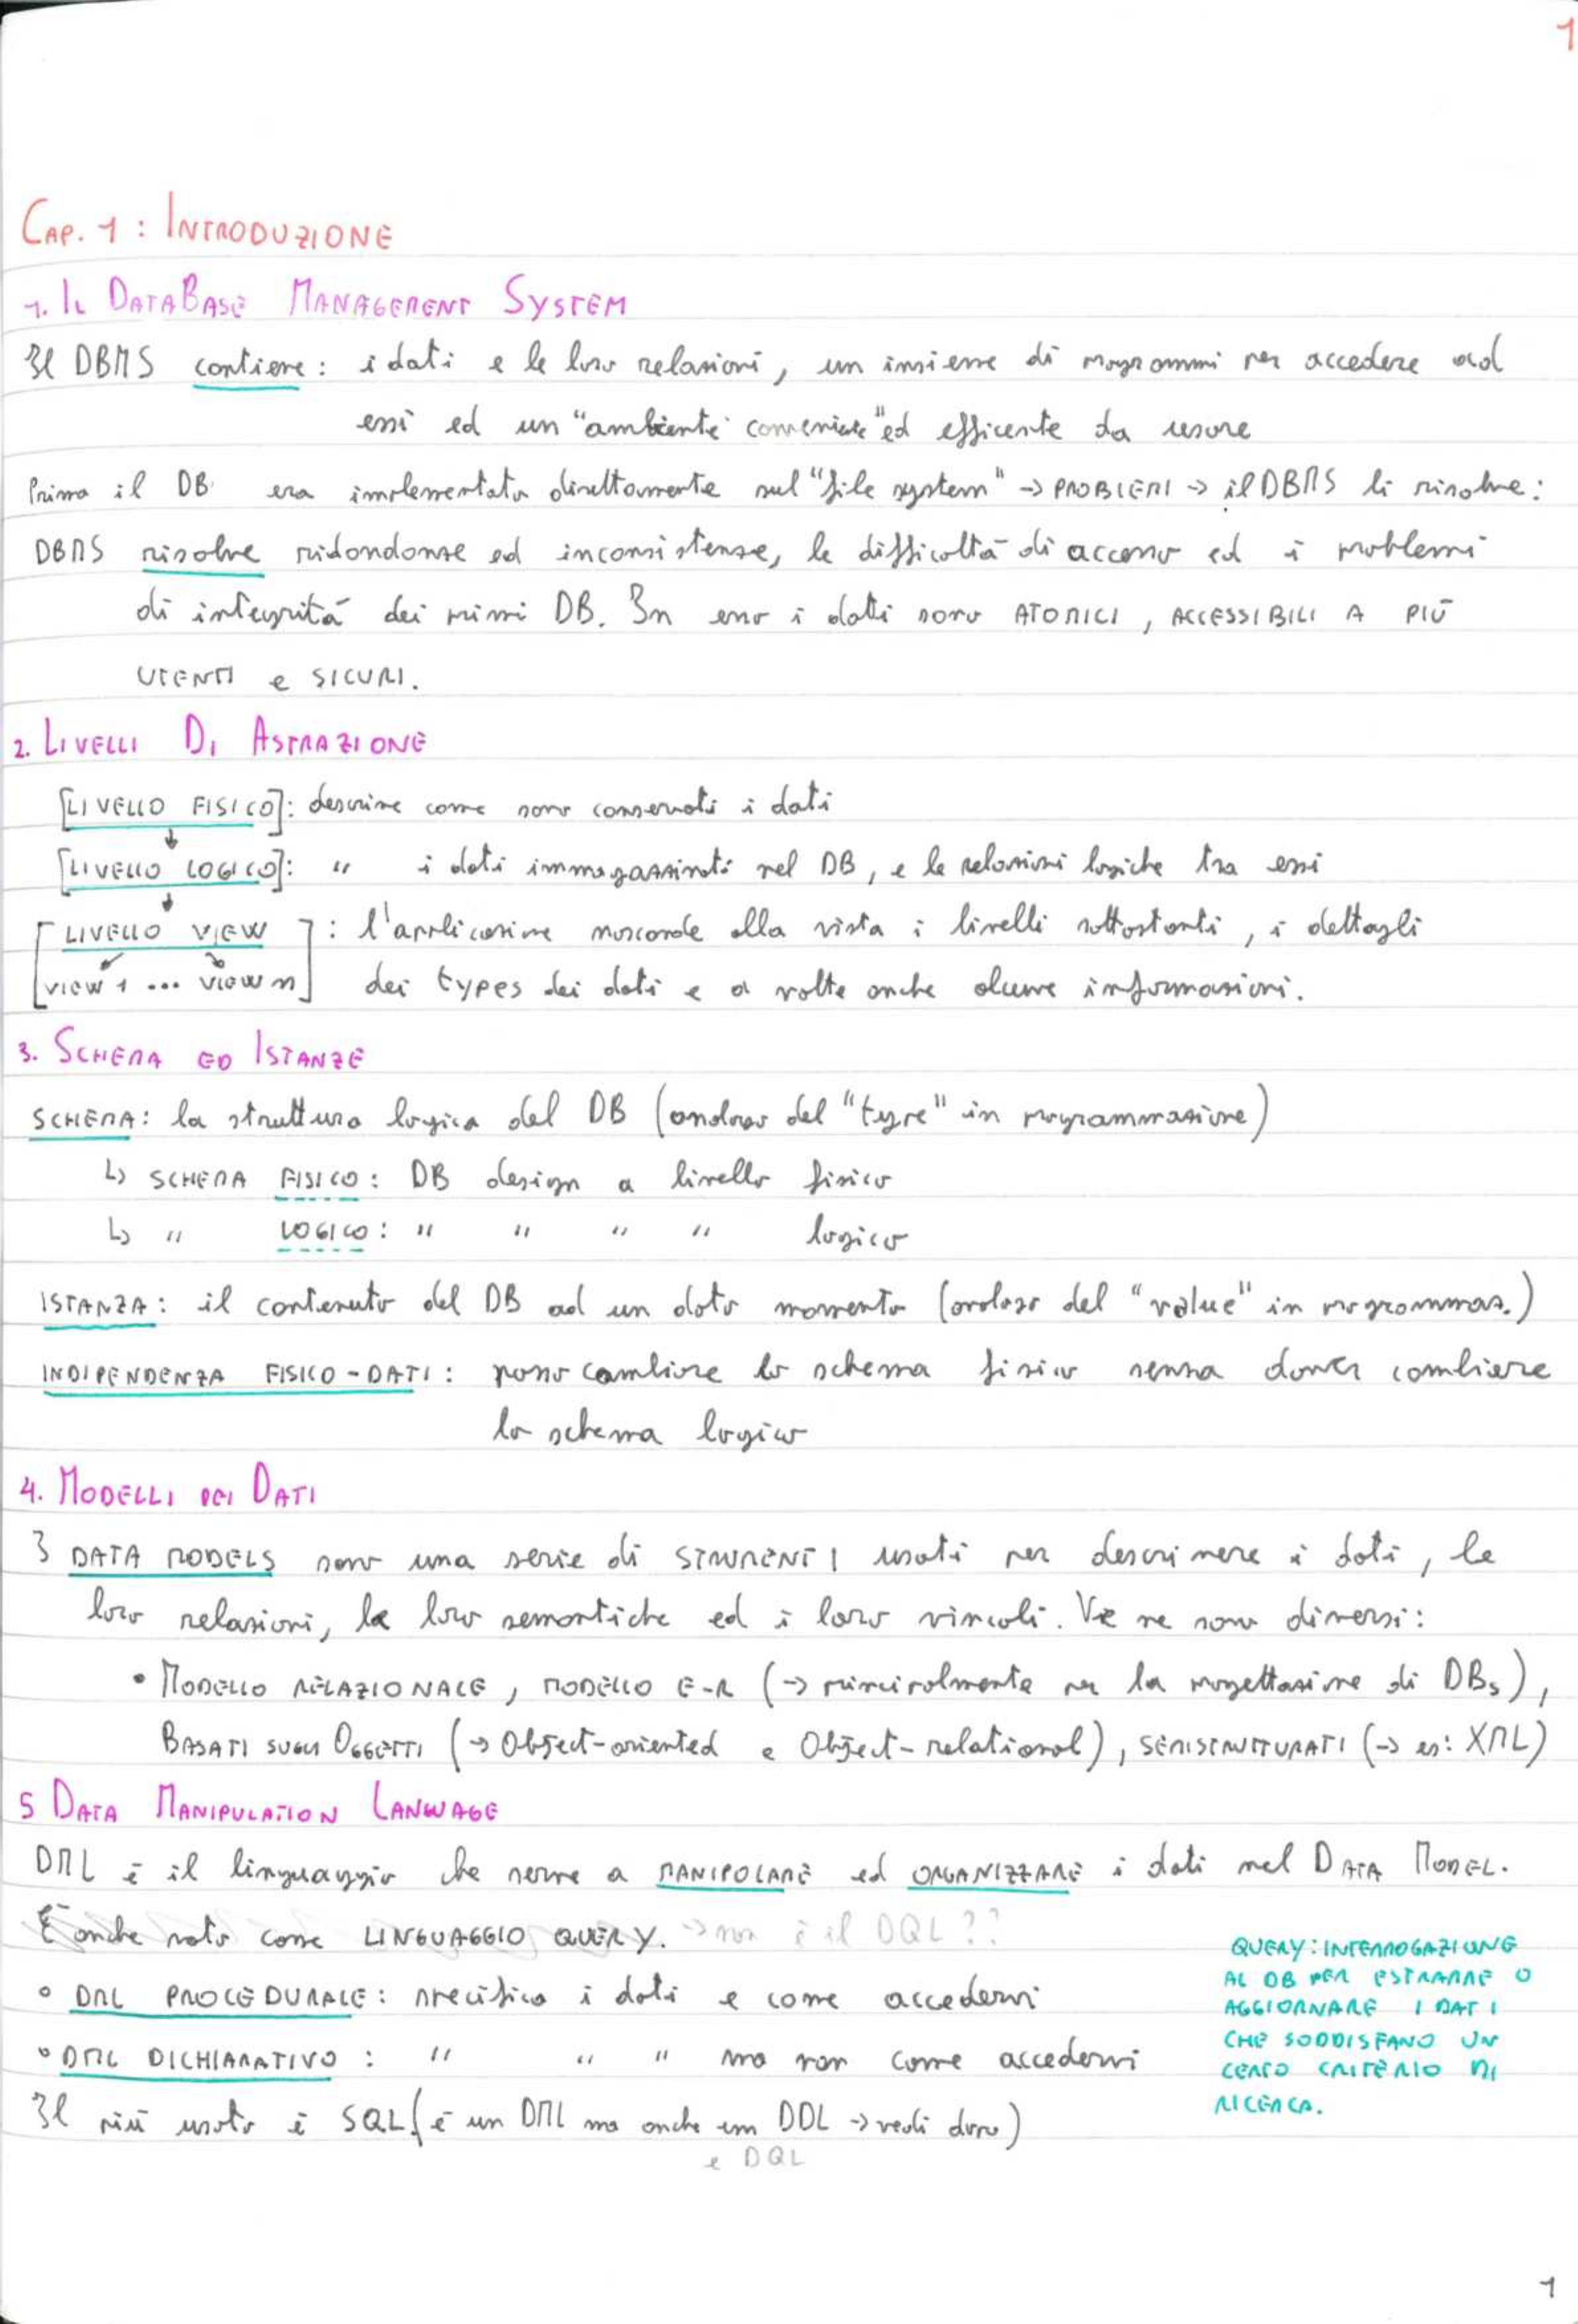 1
CAP. 1 : INTRODUZIONE
1. IL DATABASE MANAGEMENT SYSTEM
Il DBMS contiene: i dati e le loro relazioni, un insieme di programmi per accedere ad
essi ed un "ambiente conveniente" ed efficente da usare
Prima il DB era implementato direttamente sul "file system" -> PROBLEMI -> il DBMS li risolve:
DBMS risolve ridondanze ed inconsistenze, le difficoltà di accesso ed i problemi
di integrità dei primi DB. In esso i dati sono ATOMICI, ACCESSIBILI A PIÙ
UTENTI e SICURI.
2. LIVELLI DI ASTRAZIONE
[LIVELLO FISICO]: descrive come sono conservati i dati
[LIVELLO LOGICO]: " i dati immagazzinati nel DB, e le relazioni logiche tra essi
[LIVELLO VIEW]: l'applicazione nasconde alla vista i livelli sottostanti, i dettagli
[view 1 ... view n] dei types dei dati e a volte anche alcune informazioni.
3. SCHEMA ED ISTANZE
SCHEMA: la struttura logica del DB (analogo del "type" in programmazione)
↳ SCHEMA FISICO: DB design a livello fisico
↳ " LOGICO: " " " " logico
ISTANZA: il contenuto del DB ad un dato momento (analogo del "value" in programmaz.)
INDIPENDENZA FISICO-DATI: posso cambiare lo schema fisico senza dover cambiare
lo schema logico
4. MODELLI DEI DATI
I DATA MODELS sono una serie di STRUMENTI usati per descrivere i dati, le
loro relazioni, le loro semantiche ed i loro vincoli. Ve ne sono diversi:
• MODELLO RELAZIONALE, MODELLO E-R (-> principalmente per la progettazione di DBs),
BASATI SUGLI OGGETTI (-> Object-oriented e Object-relational), SEMISTRUTTURATI (-> es: XML)
5 DATA MANIPULATION LANGUAGE
DML è il linguaggio che serve a MANIPOLARE ed ORGANIZZARE i dati nel DATA MODEL.
È anche noto come LINGUAGGIO QUERY. -> non è il DQL??
° DML PROCEDURALE: specifica i dati e come accedervi
° DML DICHIARATIVO: " " " ma non come accedervi
Il più usato è SQL (è un DML ma anche un DDL -> vedi dopo)
e DQL
QUERY: INTERROGAZIONE
AL DB PER ESTRARRE O
AGGIORNARE I DATI
CHE SODDISFANO UN
CERTO CRITERIO DI
RICERCA.
1